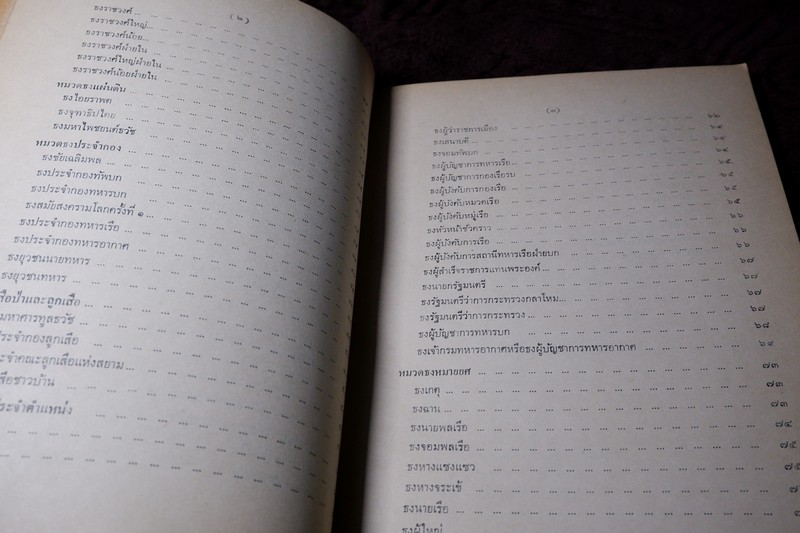 (๒)
ธงราชวงศ์ ...
ธงราชวงศ์ใหญ่...
ธงราชวงศ์น้อย...
ธงราชวงศ์ฝ่ายใน ...
ธงราชวงศ์ใหญ่ฝ่ายใน ...
ธงราชวงศ์น้อยฝ่ายใน ...
หมวดธงแผ่นดิน ...
ธงไอยราพต ...
ธงจุฑาธิปไตย ...
ธงมหาไพชยนต์ธวัช ...
หมวดธงประจำกอง ...
ธงชัยเฉลิมพล ...
ธงประจำกองทัพบก ...
ธงประจำกองทหารบก ...
ธงสมัยสงครามโลกครั้งที่ ๑ ...
ธงประจำกองทหารเรือ ...
ธงประจำกองทหารอากาศ ...
ธงยุวชนนายทหาร ...
ธงยุวชนทหาร ...
สือป่าและลูกเสือ ...
มหาศารทูลธวัช ...
ประจำกองลูกเสือ ...
ะจำคณะลูกเสือแห่งสยาม ...
สือชาวบ้าน ...
ประจำตำแหน่ง ...
(๓)
ธงผู้ว่าราชการเมือง ... ๖๒
ธงเสนาบดี ... ๖๔
ธงจอมทัพบก ... ๖๔
ธงผู้บัญชาการทหารเรือ ... ๖๕
ธงผู้บัญชาการกองเรือรบ ... ๖๕
ธงผู้บังคับการกองเรือ ... ๖๕
ธงผู้บังคับหมวดเรือ ... ๖๕
ธงผู้บังคับหมู่เรือ ... ๖๖
ธงหัวหน้าชั่วคราว ... ๖๖
ธงผู้บังคับการเรือ ... ๖๖
ธงผู้บังคับการสถานีทหารเรือฝ่ายบก ... ๖๗
ธงผู้สำเร็จราชการแทนพระองค์ ... ๖๗
ธงนายกรัฐมนตรี ... ๖๗
ธงรัฐมนตรีว่าการกระทรวงกลาโหม... ๖๗
ธงรัฐมนตรีว่าการกระทรวง ... ๖๗
ธงผู้บัญชาการทหารบก ... ๖๘
ธงเจ้ากรมทหารอากาศหรือธงผู้บัญชาการทหารอากาศ ... ๖๙
หมวดธงหมายยศ ... ๗๓
ธงเกตุ ... ๗๓
ธงฉาน ... ๗๓
ธงนายพลเรือ ... ๗๔
ธงจอมพลเรือ ... ๗๕
ธงหางแซงแซว ... ๗๕
ธงหางจระเข้ ...
ธงนายเรือ ...
ธงผู้ใหญ่